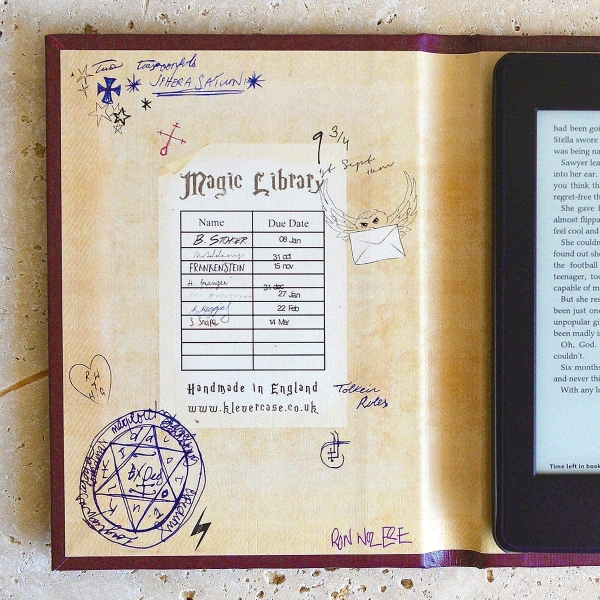 Two teaspoonfuls
SPHERA SATURNI
9 3/4
1st Sept
11am
Magic Library
Name Due Date
B. STOKER 08 Jan
31 oct
FRANKENSTEIN 15 nov
H. Granger 31 dec
27 Jan
22 Feb
S Snape 14 Mar
Handmade in England
www.klevercase.co.uk
Tolkein
Rules
R+H
H+G
RON NOZ ERE
had been goi
Stella swore
was being na
Sawyer lea
into her ear.
you think th
regret-free th
She gave
almost flippa
feel cool and
She couldn
found out she
the football
teenager, too
capable of m
But she re
been just one
unpopular gi
been madly i
Oh, God.
couldn't.
Six months
and never thi
With any lu
Time left in book